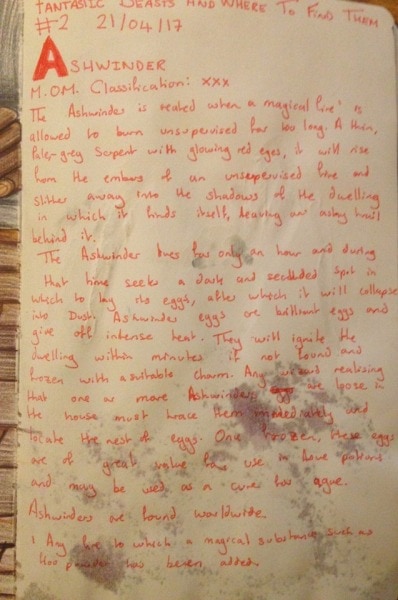 FANTASTIC BEASTS AND WHERE TO FIND THEM
#2 21/04/17
ASHWINDER
M.O.M. Classification: xxx
The Ashwinder is reated when a magical fire¹ is
allowed to burn unsupervised for too long. A thin,
Pale-grey Serpent with glowing red eyes, it will rise
from the embers of an unsupervised fire and
slither away into the shadows of the dwelling
in which it finds itself, leaving an ashy trail
behind it.
The Ashwinder lives for only an hour and during
that time seeks a dark and secluded spot in
which to lay its eggs, after which it will collapse
into Dust. Ashwinders eggs are brilliant eggs and
give off intense heat. They will ignite the
dwelling within minutes if not found and
frozen with a suitable charm. Any wizard realising
that one or more Ashwinders are loose in
the house must trace them immediately and
locate the nest of eggs. Once frozen, these eggs
are of great value for use in Love potions
and may be used as a cure for ague.
Ashwinders are found worldwide.
1 Any fire to which a magical substance such as
floo powder has been added.